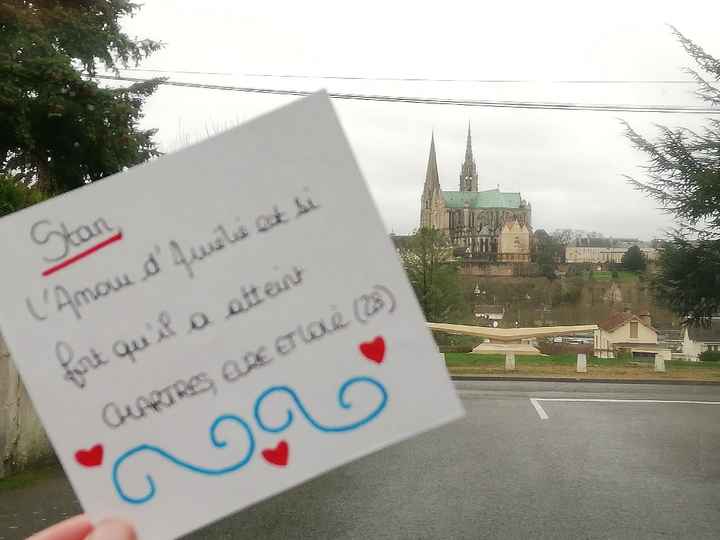 Stan
L'Amour d'Amélie est si
fort qu'il a atteint
CHARTRES, EURE ET LOIR (28)